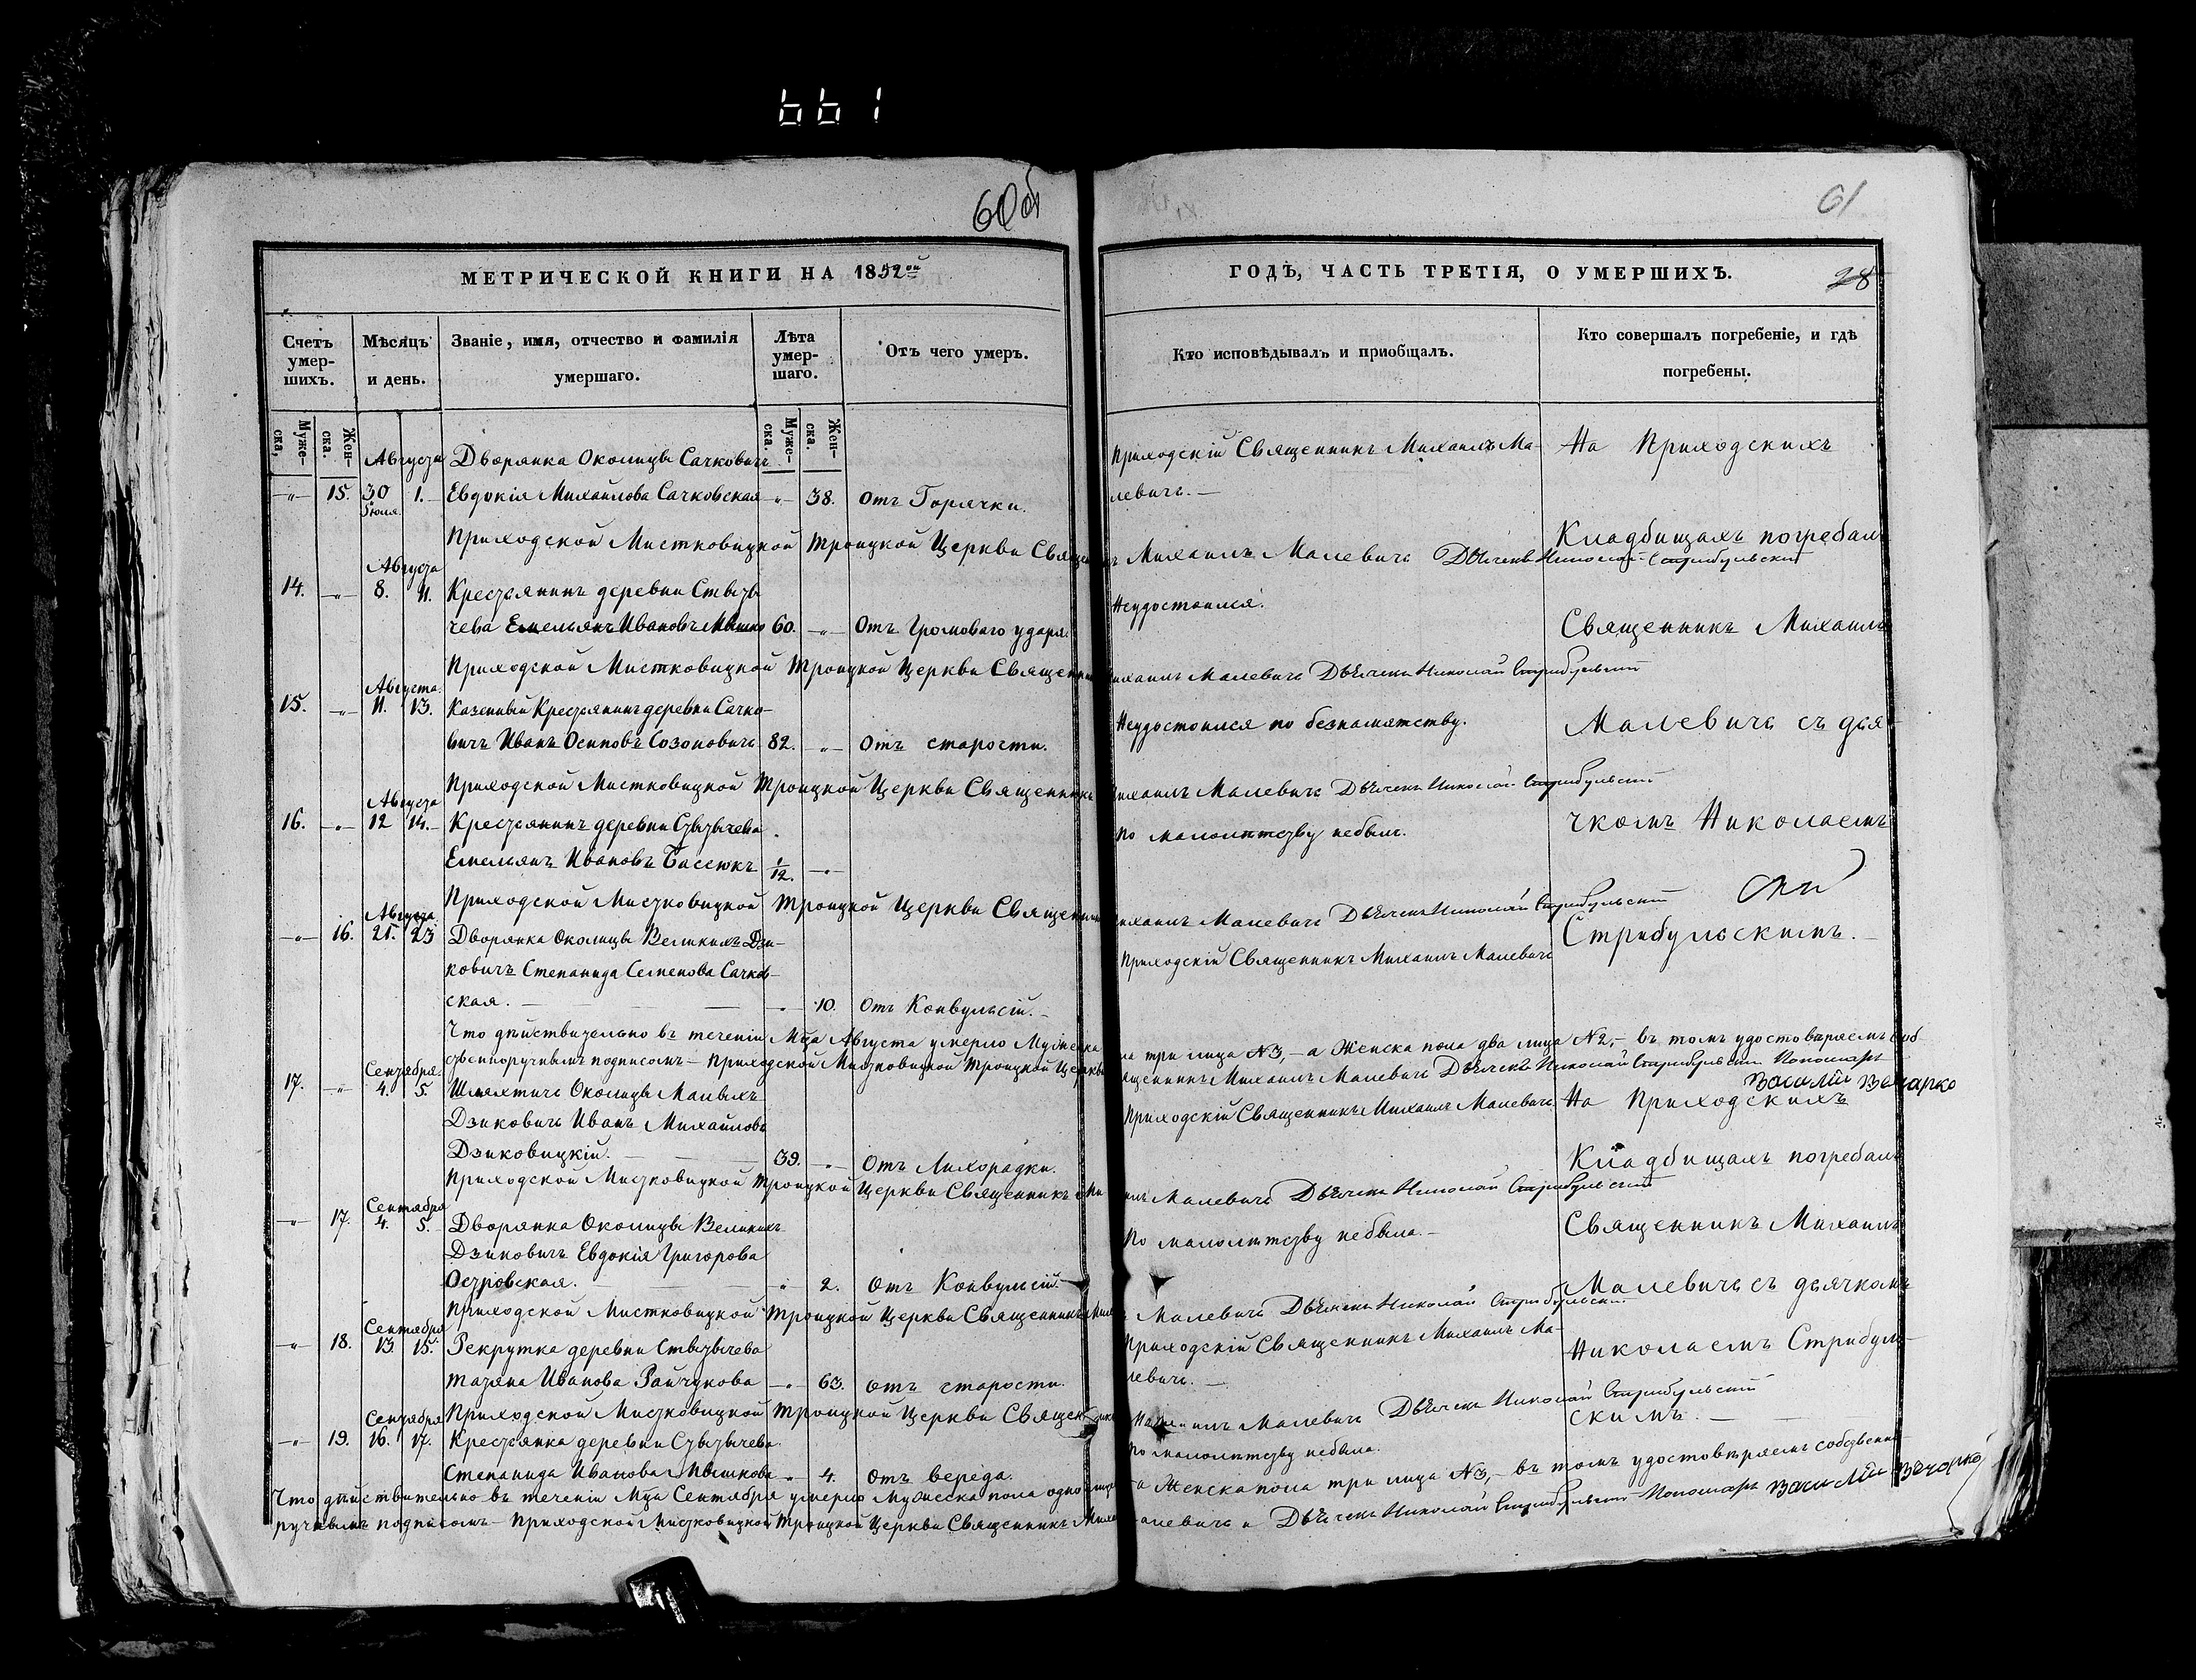 661
60об
61
МЕТРИЧЕСКОЙ КНИГИ НА 1852ой
ГОДЪ, ЧАСТЬ ТРЕТІЯ, О УМЕРШИХЪ.
28
Счетъ умер-шихъ.
Мѣсяцъ и день.
Званіе, имя, отчество и фамилія умершаго.
Лѣта умер-шаго.
Отъ чего умеръ.
Кто исповѣдывалъ и приобщалъ.
Кто совершалъ погребеніе, и гдѣ погребены.
Муже-ска,
Жен-ска.
Муже-ска.
Жен-ска.
Августа Дворянка Околицы Сачковичь
Приходскій Священникъ Михаилъ Ма-
На Приходскихъ
-„- 15. 30 Іюля 1. Евдокія Михайлова Сачковская -„- 38. отъ Горячки.
левичъ. —
Приходской Мистковицкой Троицкой Церкви Священ Михаилъ Малевичъ Дьячекъ Николай Стрибульскій
Кладбищахъ погребалъ
Августа
14. -„- 8. 11. Крестьянинъ деревни Ствы
Неудостоился.
чева Емельянъ Ивановъ Мышко 60. -„- Отъ Громоваго удара.
Священникъ Михаилъ
Приходской Мистковицкой Троицкой Церкви Священни ихаилъ Малевичъ Дьячекъ Николай Стрибульскій
Августа
15. -„- 11. 13. Казенный Крестьянинъ деревни Сачко-
Неудостоился по безпамятству.
Малевичъ съ дья
вичъ Иванъ Осиповъ Созоновичъ 82. -„- отъ старости.
Приходской Мистковицкой Троицкой Церкви Священникъ ихаилъ Малевичъ Дьячекъ Николай Стрибульскій
Августа
16. -„- 12 14. — Крестьянинъ деревни
по малолѣтству небылъ.
чкомъ Николаемъ
Емельянъ Ивановъ 1/12. -„-
Приходской Мистковицкой Троицкой Церкви Священни ихаилъ Малевичъ Дьячекъ Николай Стрибульскій
Августа
-„- 16. 21. 23 Дворянка Околицы Великихъ Дзи-
Приходскій Священникъ Михаилъ Малевичъ
Стрибульскимъ. —
ковичъ Степанида Семенова Сачков-
ская. — -„- 10. отъ Конвульсій. —
Что дѣйствительно въ теченіи Мца Августа умерло Мужеска ла три лица №3, — а Женска пола два лица №2, — въ томъ удостовѣряемъ соб-
ственноручнымъ подписомъ — Приходской Мистковицкой Троицкой Церкви ященникъ Михаилъ Малевичъ Дьячекъ Николай Стрибульскій Пономарь
Василій Вечорко
Сентября
17. -„- 4. 5. Шляхтичъ Околицы Малыхъ
Приходскій Священникъ Михаилъ Малевичъ
На Приходскихъ
Дзиковичъ Иванъ Михайловъ
Дзиковицкій. — 39. -„- Отъ Лихорадки.
Кладбищахъ погребалъ
Приходской Мистковицкой Троицкой Церкви Священникъ Ми илъ Малевичъ Дьячекъ Николай Стрибульскій
Сентября
-„- 17. 4. 5. Дворянка Околицы Великихъ
По малолѣтству небыла. —
Священникъ Михаилъ
Дзиковичъ Евдокія Григорова
Островская. — -„- 2. отъ Конвульсій. —
Малевичъ съ дьячкомъ
Приходской Мистковицкой Троицкой Церкви Священникъ Мих Малевичъ Дьячекъ Николай Стрибульскій
Сентября
-„- 18. 13 15. Рекрутка деревни
Приходскій Священникъ Михаилъ Ма-
Николаемъ Стрибуль-
Татяна Иванова -„- 63. отъ старости.
левичъ. —
Сентября Приходской Мистковицкой Троицкой Церкви Священникъ Малевичъ Дьячекъ Николай Стрибульскій
скимъ. —
-„- 19. 16. 17. Крестьянка деревни
по малолѣтству небыла.
Степанида Иванова Мышкова -„- 4. отъ вереда.
Что дѣйствительно въ теченіи Мца Сентября умерло Мужеска пола одно лице а Женска пола три лица №3, — въ томъ удостовѣряемъ собственно
ручнымъ подписомъ — Приходской Мистковицкой Троицкой Церкви Священникъ Миха алевичъ и Дьячекъ Николай Стрибульскій Пономарь Василій Вечорко